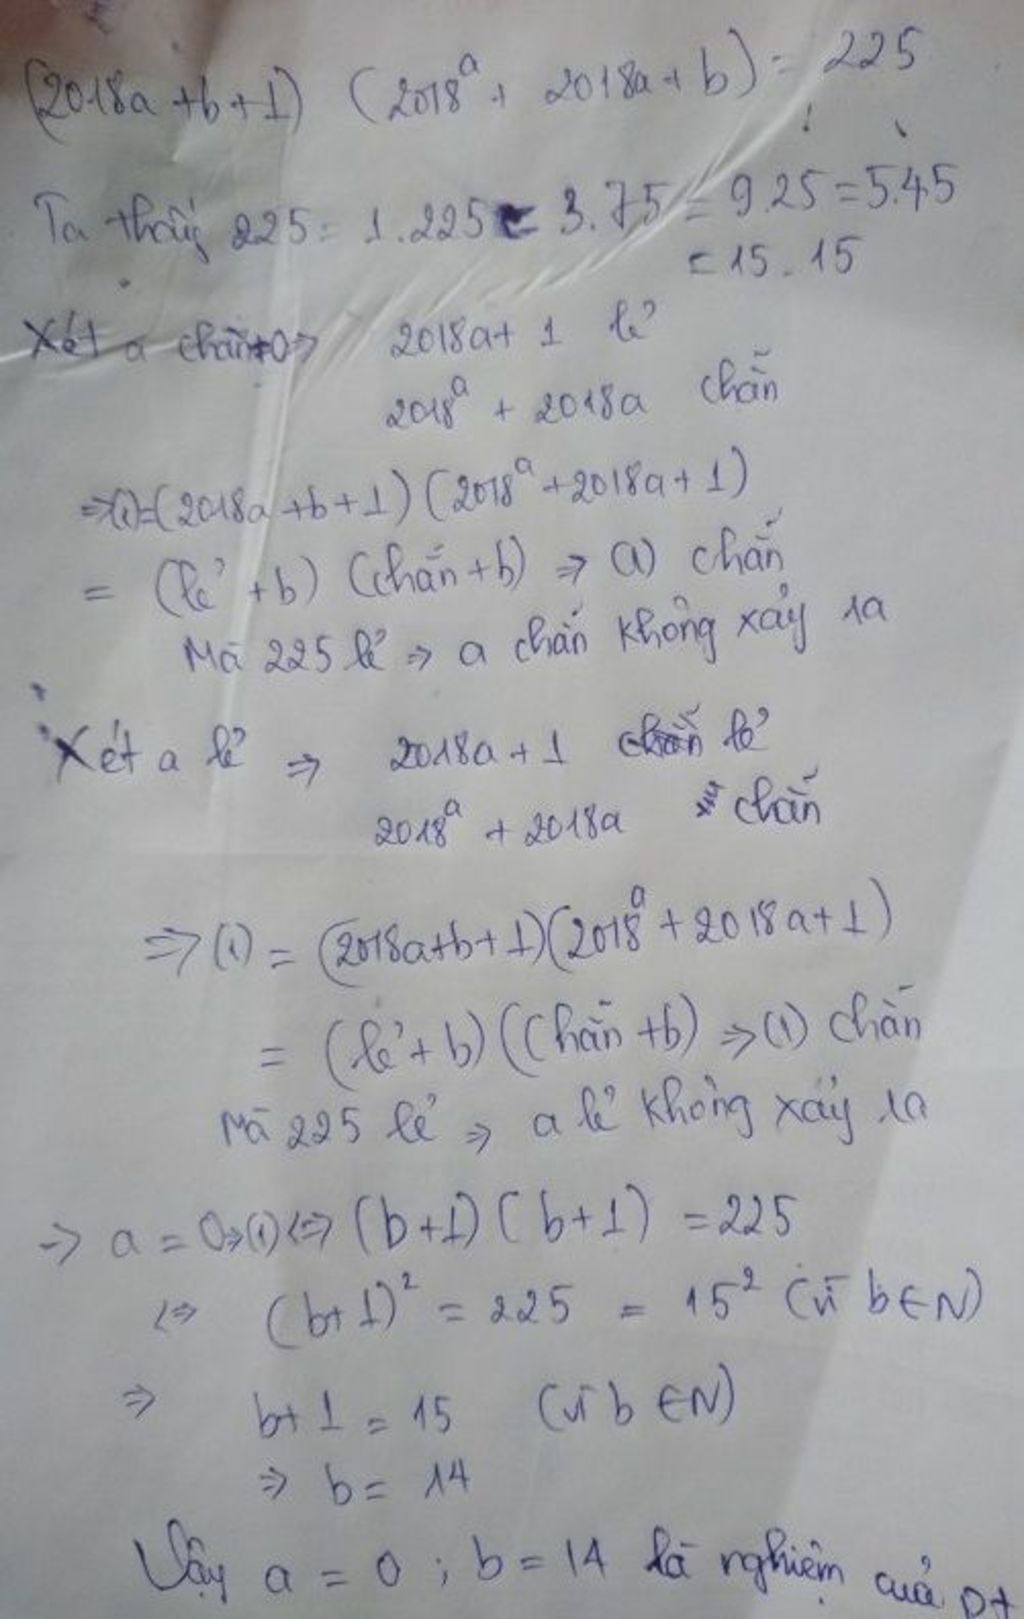 (2018a + b + 1) (2018^a + 2018a + b) = 225
Ta thấy 225 = 1.225 = 3.75 = 9.25 = 5.45
= 15.15
Xét a chẵn ≠0 => 2018a + 1 lẻ
2018^a + 2018a chẵn
=> (1) = (2018a + b + 1) (2018^a + 2018a + 1)
= (lẻ + b) (chẵn + b) => (1) chẵn
Mà 225 lẻ => a chẵn không xảy ra
Xét a lẻ => 2018a + 1 lẻ
2018^a + 2018a chẵn
=> (1) = (2018a+b+1)(2018^a + 2018a + 1)
= (lẻ + b) (chẵn + b) => (1) chẵn
Mà 225 lẻ => a lẻ không xảy ra
=> a = 0 => (1) <=> (b+1) (b+1) = 225
<=> (b+1)² = 225 = 15² (vì b ∈ N)
=> b+1 = 15 (vì b ∈ N)
=> b = 14
Vậy a = 0 ; b = 14 là nghiệm của pt